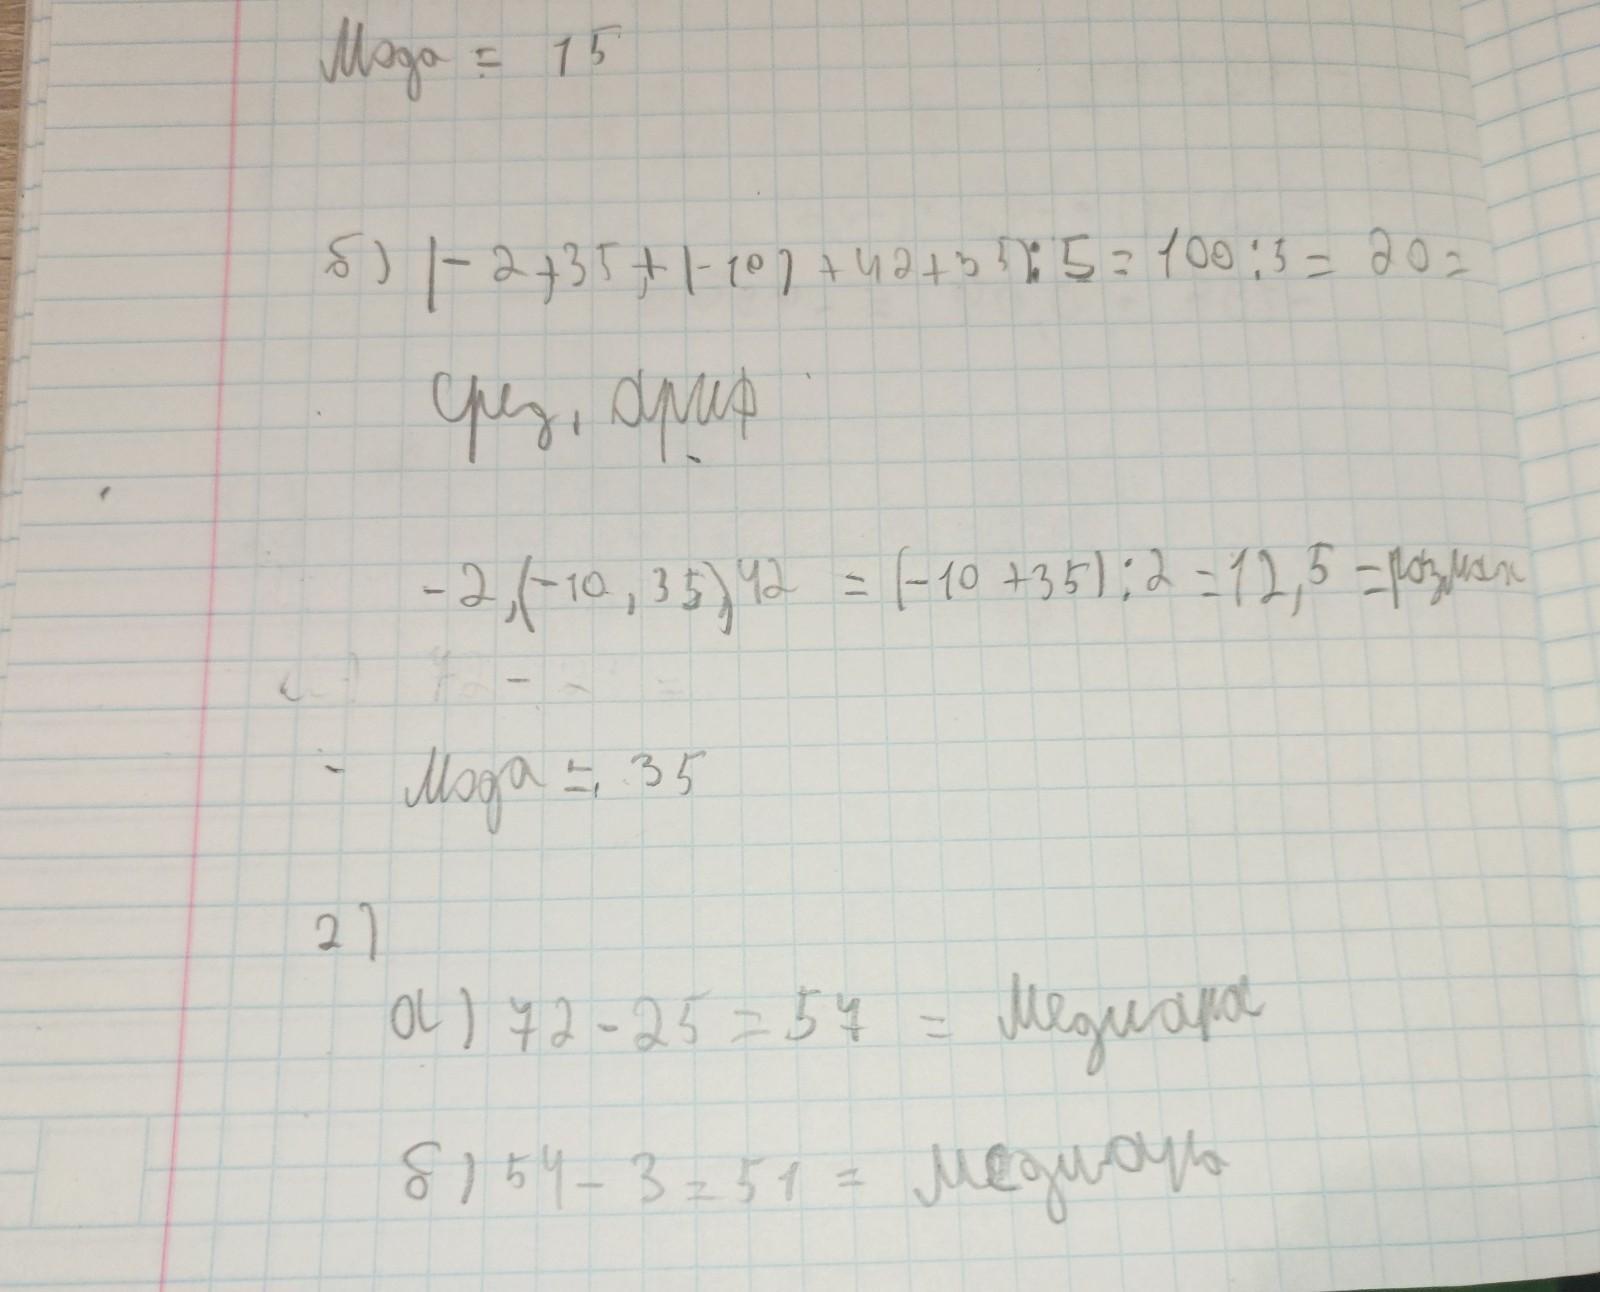 Мода = 15
б) (-2+35+(-10)+42+35):5=100:5=20=
Сред. ариф
-2,(-10,35),42 = (-10+35):2=12,5=размах
- Мода = 35
2)
а) 72-25=57 = Медиана
б) 54-3=51 = Медиана